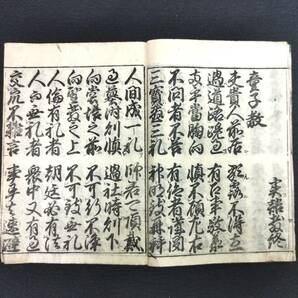 実語教終
童子教
夫貴人前居 顕露不得立
遇道路跪過 有召事敬承
両手当胸向 慎不顧左右
不問者不答 有仰者謹聞
三宝尽三礼 神明致再拝
人間成一礼 師君可頂戴
過墓時則慎 過社時則下
向堂塔之前 不可行不浄
向聖教之上 不可致無礼
人倫有礼者 朝廷必有法
人而無礼者 衆中又有過
交衆不雑言 事畢者速避